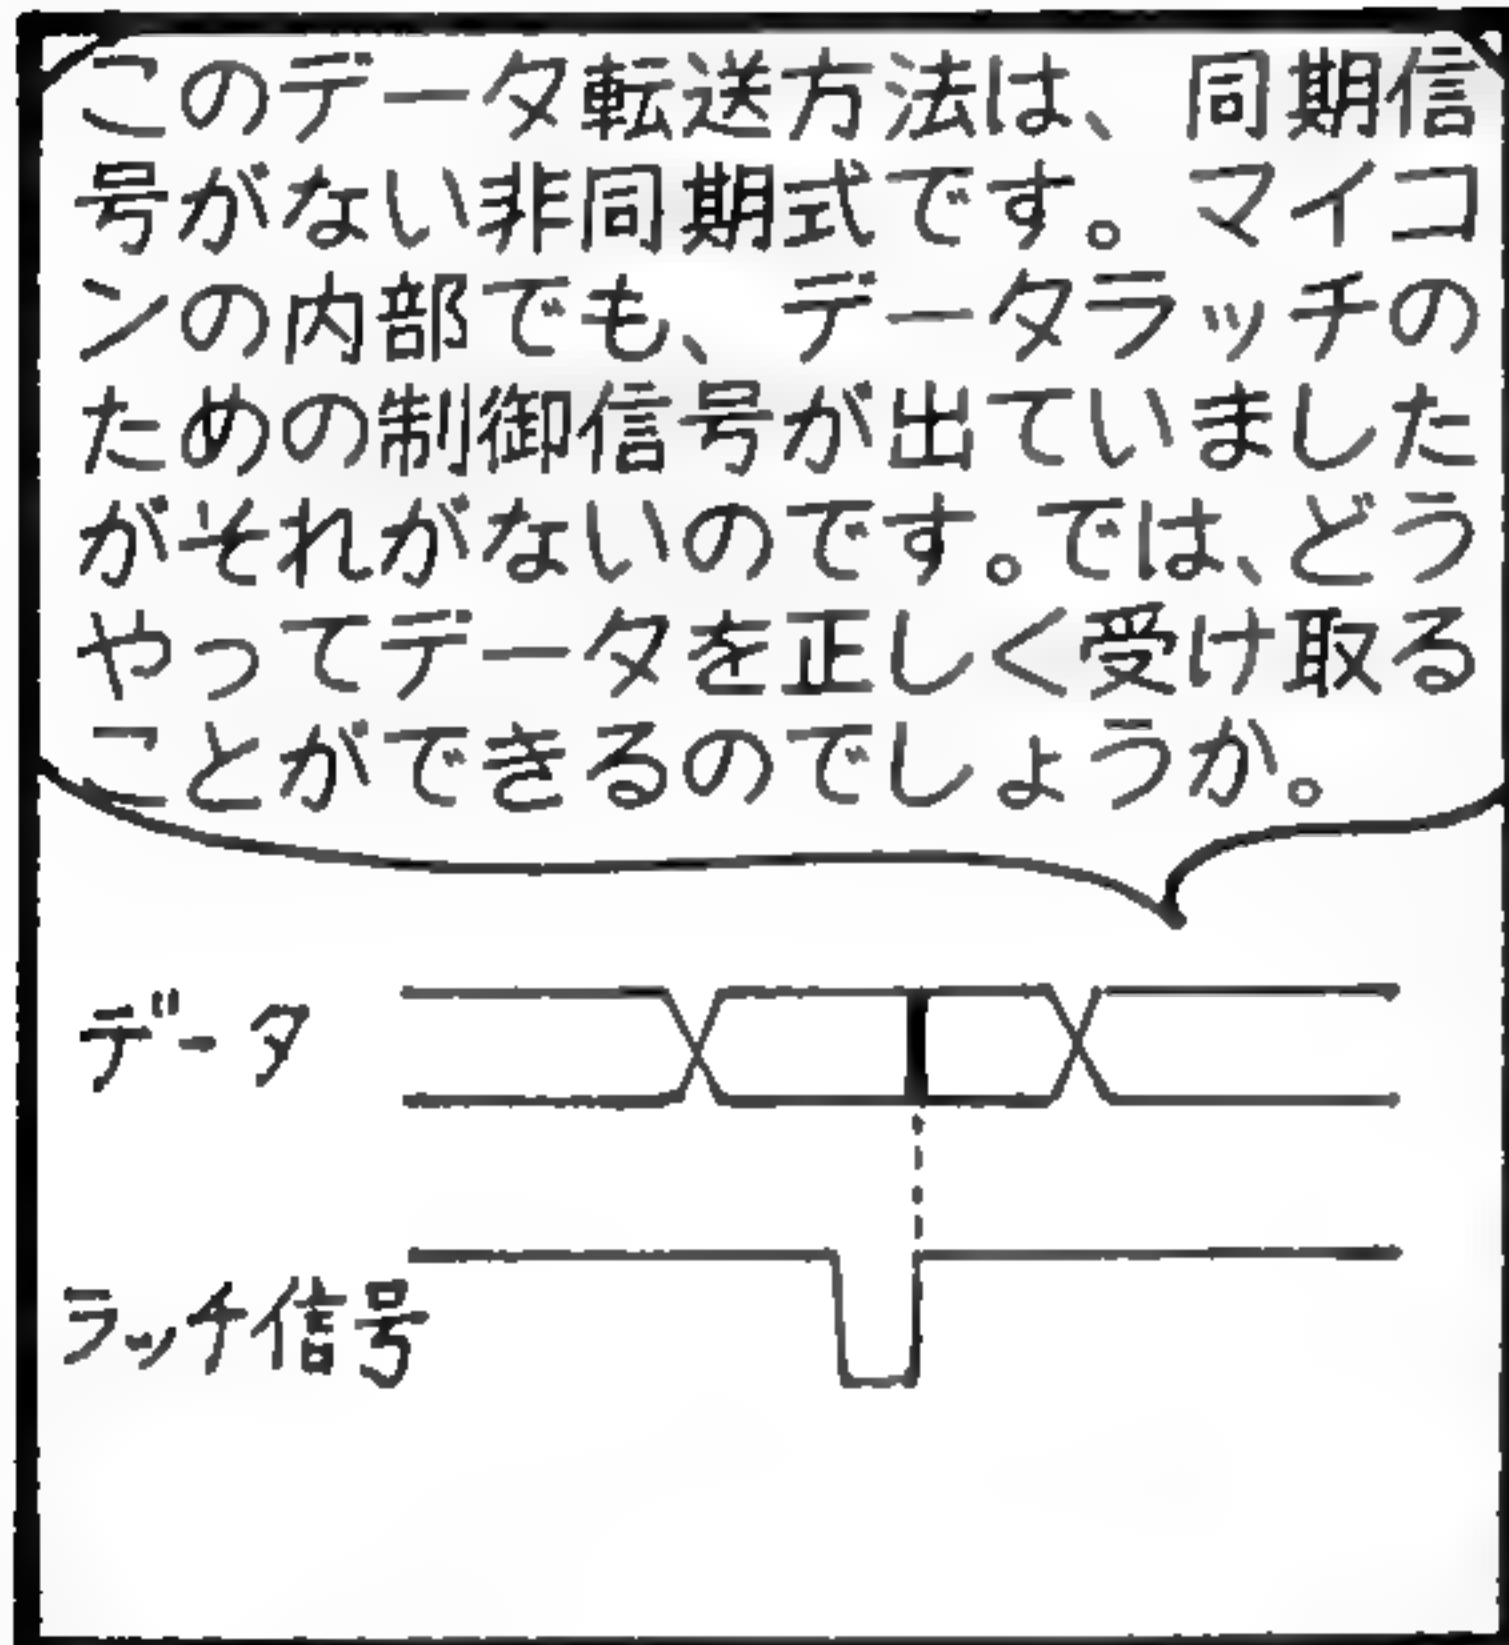 このデータ転送方法は、同期信
号がない非同期式です。マイコ
ンの内部でも、データラッチの
ための制御信号が出ていました
がそれがないのです。では、どう
やってデータを正しく受け取る
ことができるのでしょうか。
データ
ラッチ信号